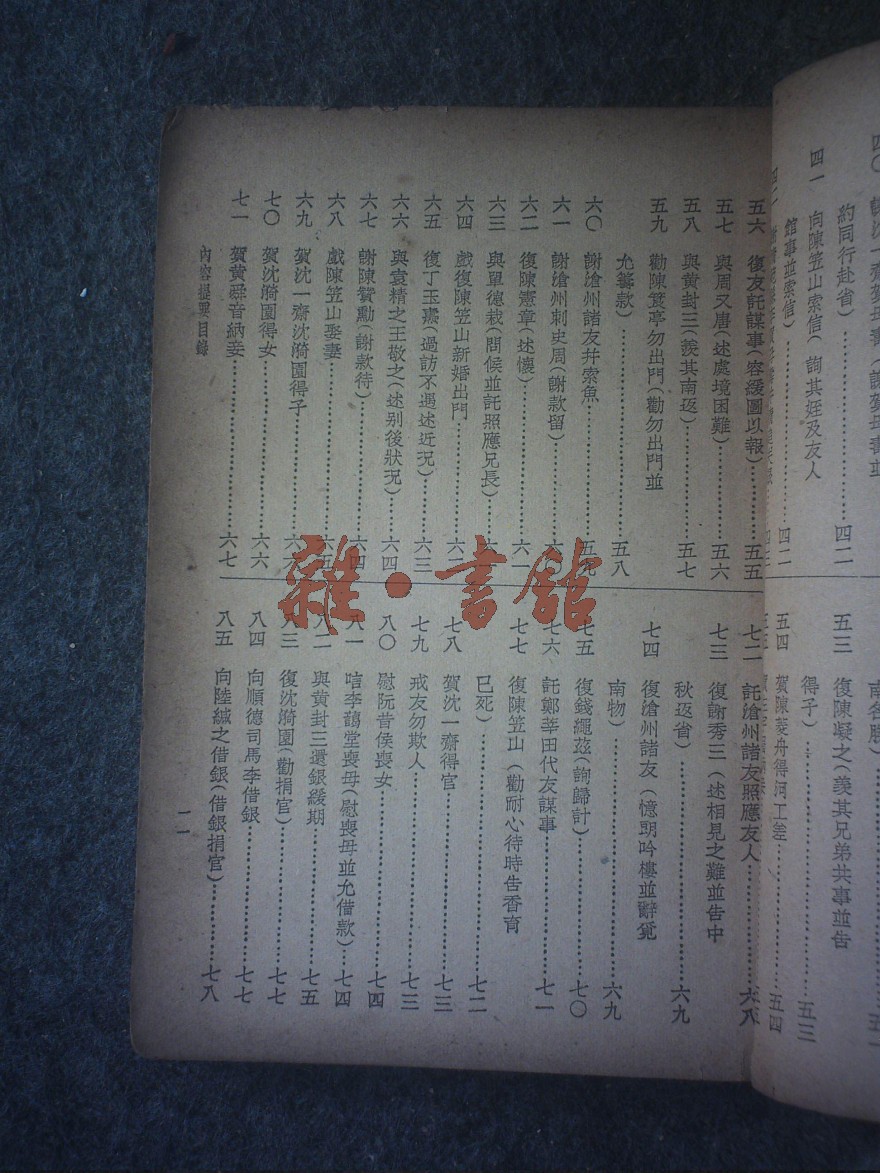 約同行赴省)……四二
四一　向陳笠山索信(詢其姪及友人
館事並索信)……四二
五三　復陳凝之(羨其兄弟共事並告
得子)……五三
五四　賀陳菱舟得河工差……五四
五六　復友託謀事(容緩圖以報)……五五
五七　與周又唐(述處境困難)……五六
五八　與黄封三(羨其南返)……五七
五九　勸陳蓂亭勿出門(勸勿出門並
允籌款)……五八
六〇　謝滄州諸友并索魚……五九
六一　謝滄州刺史周(謝款留)
六二　復陳憲章(述懷)……六一
六三　與單德栽(問候並託照應兄長)
六四　戲復陳笠山新婚出門……六二
六五　復丁玉壽(過訪不遇述近況)……六三
六六　與袁精之王敬之(述别後狀況)……六四
六七　謝陳贊勳(謝款待)……六四
六八　戲陳笠山娶妻……六五
六九　賀沈一齋沈漪園得子
七〇　賀沈漪園得女……六六
七一　賀黄舜音納妾……六七
七二　託滄州諸友照應友人……六八
七三　復謝秀三(述相見之難並告中
秋返省)……六九
七四　復滄州諸友(憶朗吟樓並辭覓
南物)……六九
七五　復錢繩兹(詢歸計)……七〇
七六　託鄭莘田代友謀事……七一
七七　復陳笠山(勸耐心待時告香育
已死)……七二
七八　賀沈一齋得官……七三
七九　戒友勿欺人……七三
八〇　慰阮昔侯喪女……七四
八一　唁李藹堂喪母(慰喪母並允借款)……七四
八二　與黄封三還銀緩期……七五
八三　復沈漪園(勸捐官)……七七
八四　向順德司馬李借銀……七七
八五　向陸緘之借銀(借銀捐官)……七八
內容提要目錄
一一
雜·書館